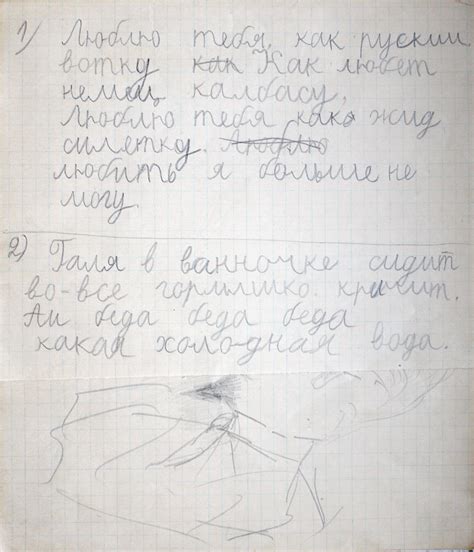 1) Люблю тебя, как руский
вотку как Как любет
немец калбасу,
Люблю тебя как жид
силетку. Люблю
любить я больше не
могу.
2) Галя в ванночке сидит
во-все горлышко кричит.
Аи беда беда беда
какая холодная вода.